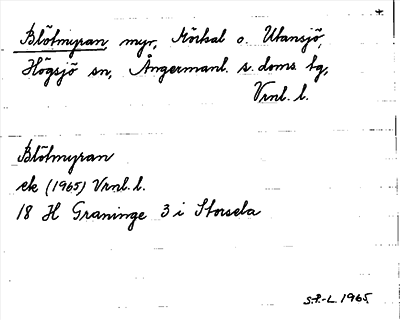 Blötmyran, myr, Mörtsal o. Utansjö,
Högsjö sn, Ångermanl. s. doms. tg,
Vrnl. l.
Blötmyran
ek (1965) Vrnl. l.
18 H Graninge 3 i Storsela
S.P.-L 1965